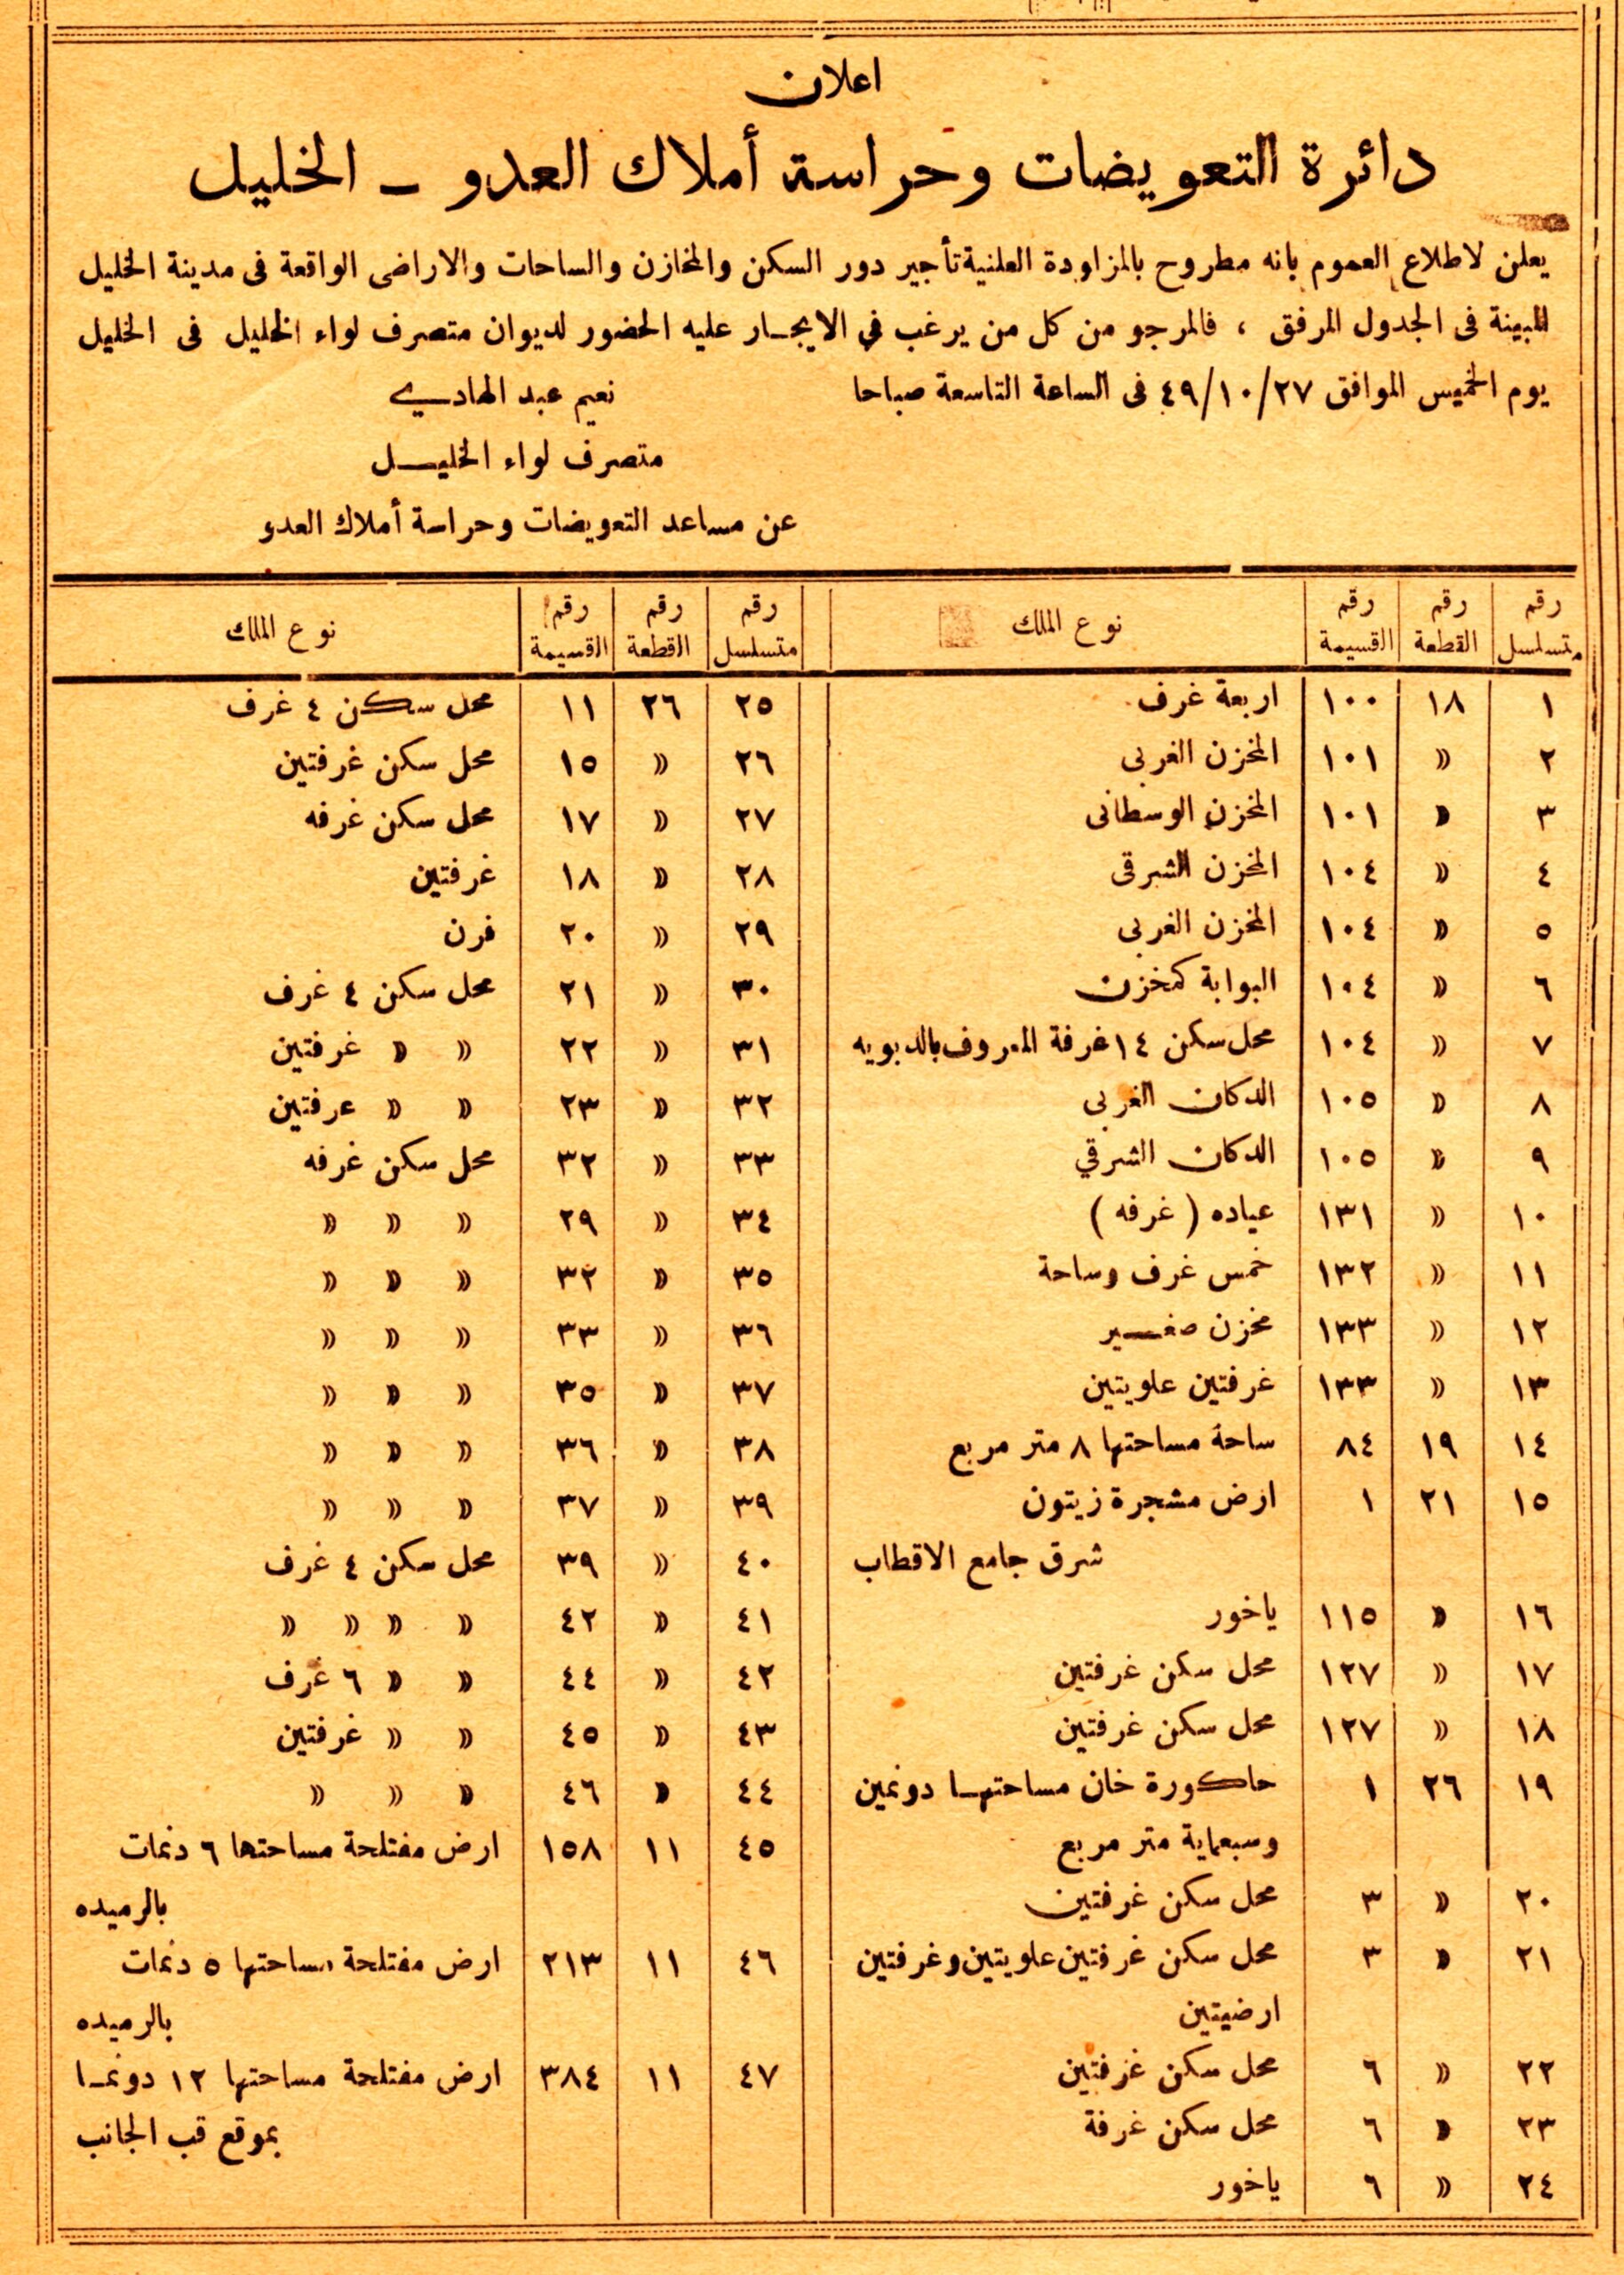 اعلان
دائرة التعويضات وحراسة أملاك العدو – الخليل
يعلن لاطلاع العموم بانه مطروح بالمزاودة العلنية تأجير دور السكن والمخازن والساحات والاراضى الواقعة فى مدينة الخليل
المبينة فى الجدول المرفق ، فالمرجو من كل من يرغب في الايجـار عليه الحضور لديوان متصرف لواء الخليل فى الخليل
يوم الخميس الموافق ٤٩/١٠/٢٧ فى الساعة التاسعة صباحا نعيم عبد الهادي
متصرف لواء الخليـل
عن مساعد التعويضات وحراسة أملاك العدو
رقم متسلسل رقم القطعة رقم القسيمة نوع الملك
١ ١٨ ١٠٠ اربعة غرف
٢ » ١٠١ المخزن الغربى
٣ » ١٠١ المخزن الوسطانى
٤ » ١٠٤ المخزن الشرقى
٥ » ١٠٤ المخزن الغربى
٦ » ١٠٤ البوابة كمخزن
٧ » ١٠٤ محل سكن ١٤ غرفة المعروف بالدبويه
٨ » ١٠٥ الدكان الغربى
٩ » ١٠٥ الدكان الشرقي
١٠ » ١٣١ عياده ( غرفه )
١١ » ١٣٢ خمس غرف وساحة
١٢ » ١٣٣ مخزن صغـير
١٣ » ١٣٣ غرفتين علويتين
١٤ ١٩ ٨٤ ساحة مساحتها ٨ متر مربع
١٥ ٢١ ١ ارض مشجرة زيتون
شرق جامع الاقطاب
١٦ » ١١٥ ياخور
١٧ » ١٢٧ محل سكن غرفتين
١٨ » ١٢٧ محل سكن غرفتين
١٩ ٢٦ ١ حاكورة خان مساحتهـا دونمين
وسبعماية متر مربع
٢٠ » ٣ محل سكن غرفتين
٢١ » ٣ محل سكن غرفتين علويتين وغرفتين
ارضيتين
٢٢ » ٦ محل سكن غرفتين
٢٣ » ٦ محل سكن غرفة
٢٤ » ٦ ياخور
رقم متسلسل رقم القطعة رقم القسيمة نوع الملك
٢٥ ٢٦ ١١ محل سكن ٤ غرف
٢٦ » ١٥ محل سكن غرفتين
٢٧ » ١٧ محل سكن غرفه
٢٨ » ١٨ غرفتين
٢٩ » ٢٠ فرن
٣٠ » ٢١ محل سكن ٤ غرف
٣١ » ٢٢ » » غرفتين
٣٢ » ٢٣ » » غرفتين
٣٣ » ٣٢ محل سكن غرفه
٣٤ » ٢٩ » » »
٣٥ » ٣٢ » » »
٣٦ » ٣٣ » » »
٣٧ » ٣٥ » » »
٣٨ » ٣٦ » » »
٣٩ » ٣٧ » » »
٤٠ » ٣٩ محل سكن ٤ غرف
٤١ » ٤٢ » » » »
٤٢ » ٤٤ » » ٦ غرف
٤٣ » ٤٥ » » غرفتين
٤٤ » ٤٦ » » »
٤٥ ١١ ١٥٨ ارض مفتلحة مساحتها ٦ دنمات
بالرميده
٤٦ ١١ ٢١٣ ارض مفتلحة مساحتها ٥ دنمات
بالرميده
٤٧ ١١ ٣٨٤ ارض مفتلحة مساحتها ١٢ دونمـا
بموقع قب الجانب